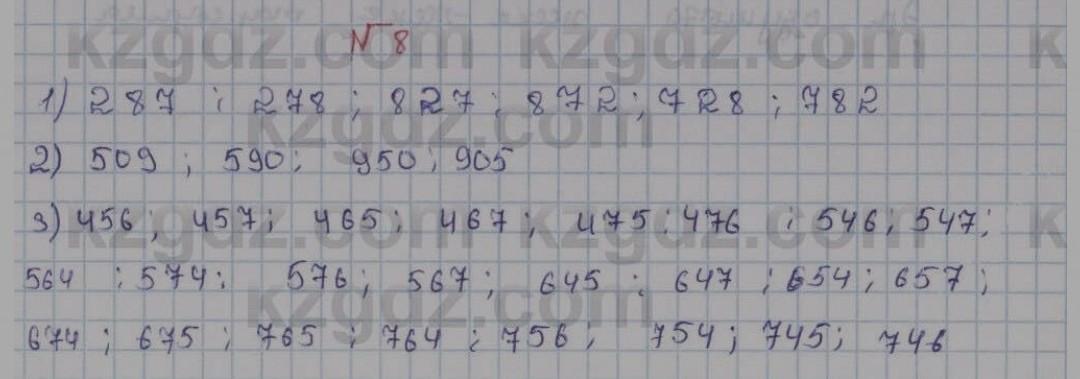 № 8
1) 287 ; 278 ; 827 ; 872 ; 728 ; 782
2) 509 ; 590 ; 950 ; 905
3) 456 ; 457 ; 465 ; 467 ; 475 ; 476 ; 546 ; 547 ;
564 ; 574 ; 576 ; 567 ; 645 ; 647 ; 654 ; 657 ;
674 ; 675 ; 765 ; 764 ; 756 ; 754 ; 745 ; 746
kzgdz.com kzgdz.com
kzgdz.com
kzgdz.com kzgdz.com
kzgdz.com